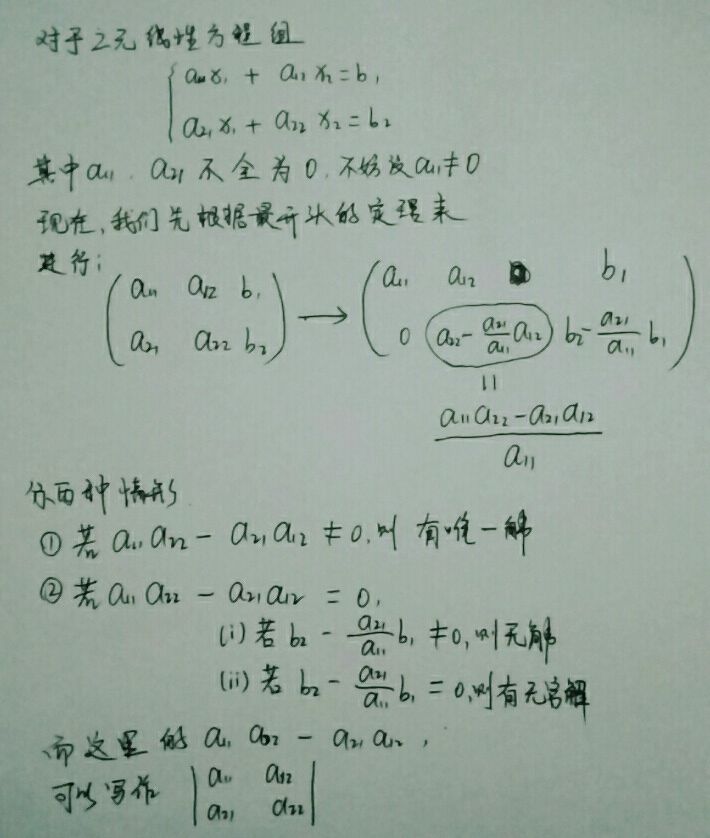 对于二元线性方程组
a₁₁x₁ + a₁₂x₂=b₁
a₂₁x₁ + a₂₂x₂=b₂
其中a₁₁, a₂₁不全为0, 不妨设a₁₁≠0
现在, 我们先根据最开头的定理来
进行:
( a₁₁ a₁₂ b₁ ; a₂₁ a₂₂ b₂ ) → ( a₁₁ a₁₂ b₁ ; 0 a₂₂ - (a₂₁/a₁₁)a₁₂ b₂ - (a₂₁/a₁₁)b₁ )
=
(a₁₁a₂₂ - a₂₁a₁₂)/a₁₁
分两种情形
① 若 a₁₁a₂₂ - a₂₁a₁₂ ≠0, 则 有唯一解
② 若 a₁₁a₂₂ - a₂₁a₁₂ = 0,
(i) 若 b₂ - (a₂₁/a₁₁)b₁ ≠0, 则无解
(ii) 若 b₂ - (a₂₁/a₁₁)b₁ =0, 则有无穷解
而这里的 a₁₁a₂₂ - a₂₁a₁₂,
可以写作 | a₁₁ a₁₂ ; a₂₁ a₂₂ |